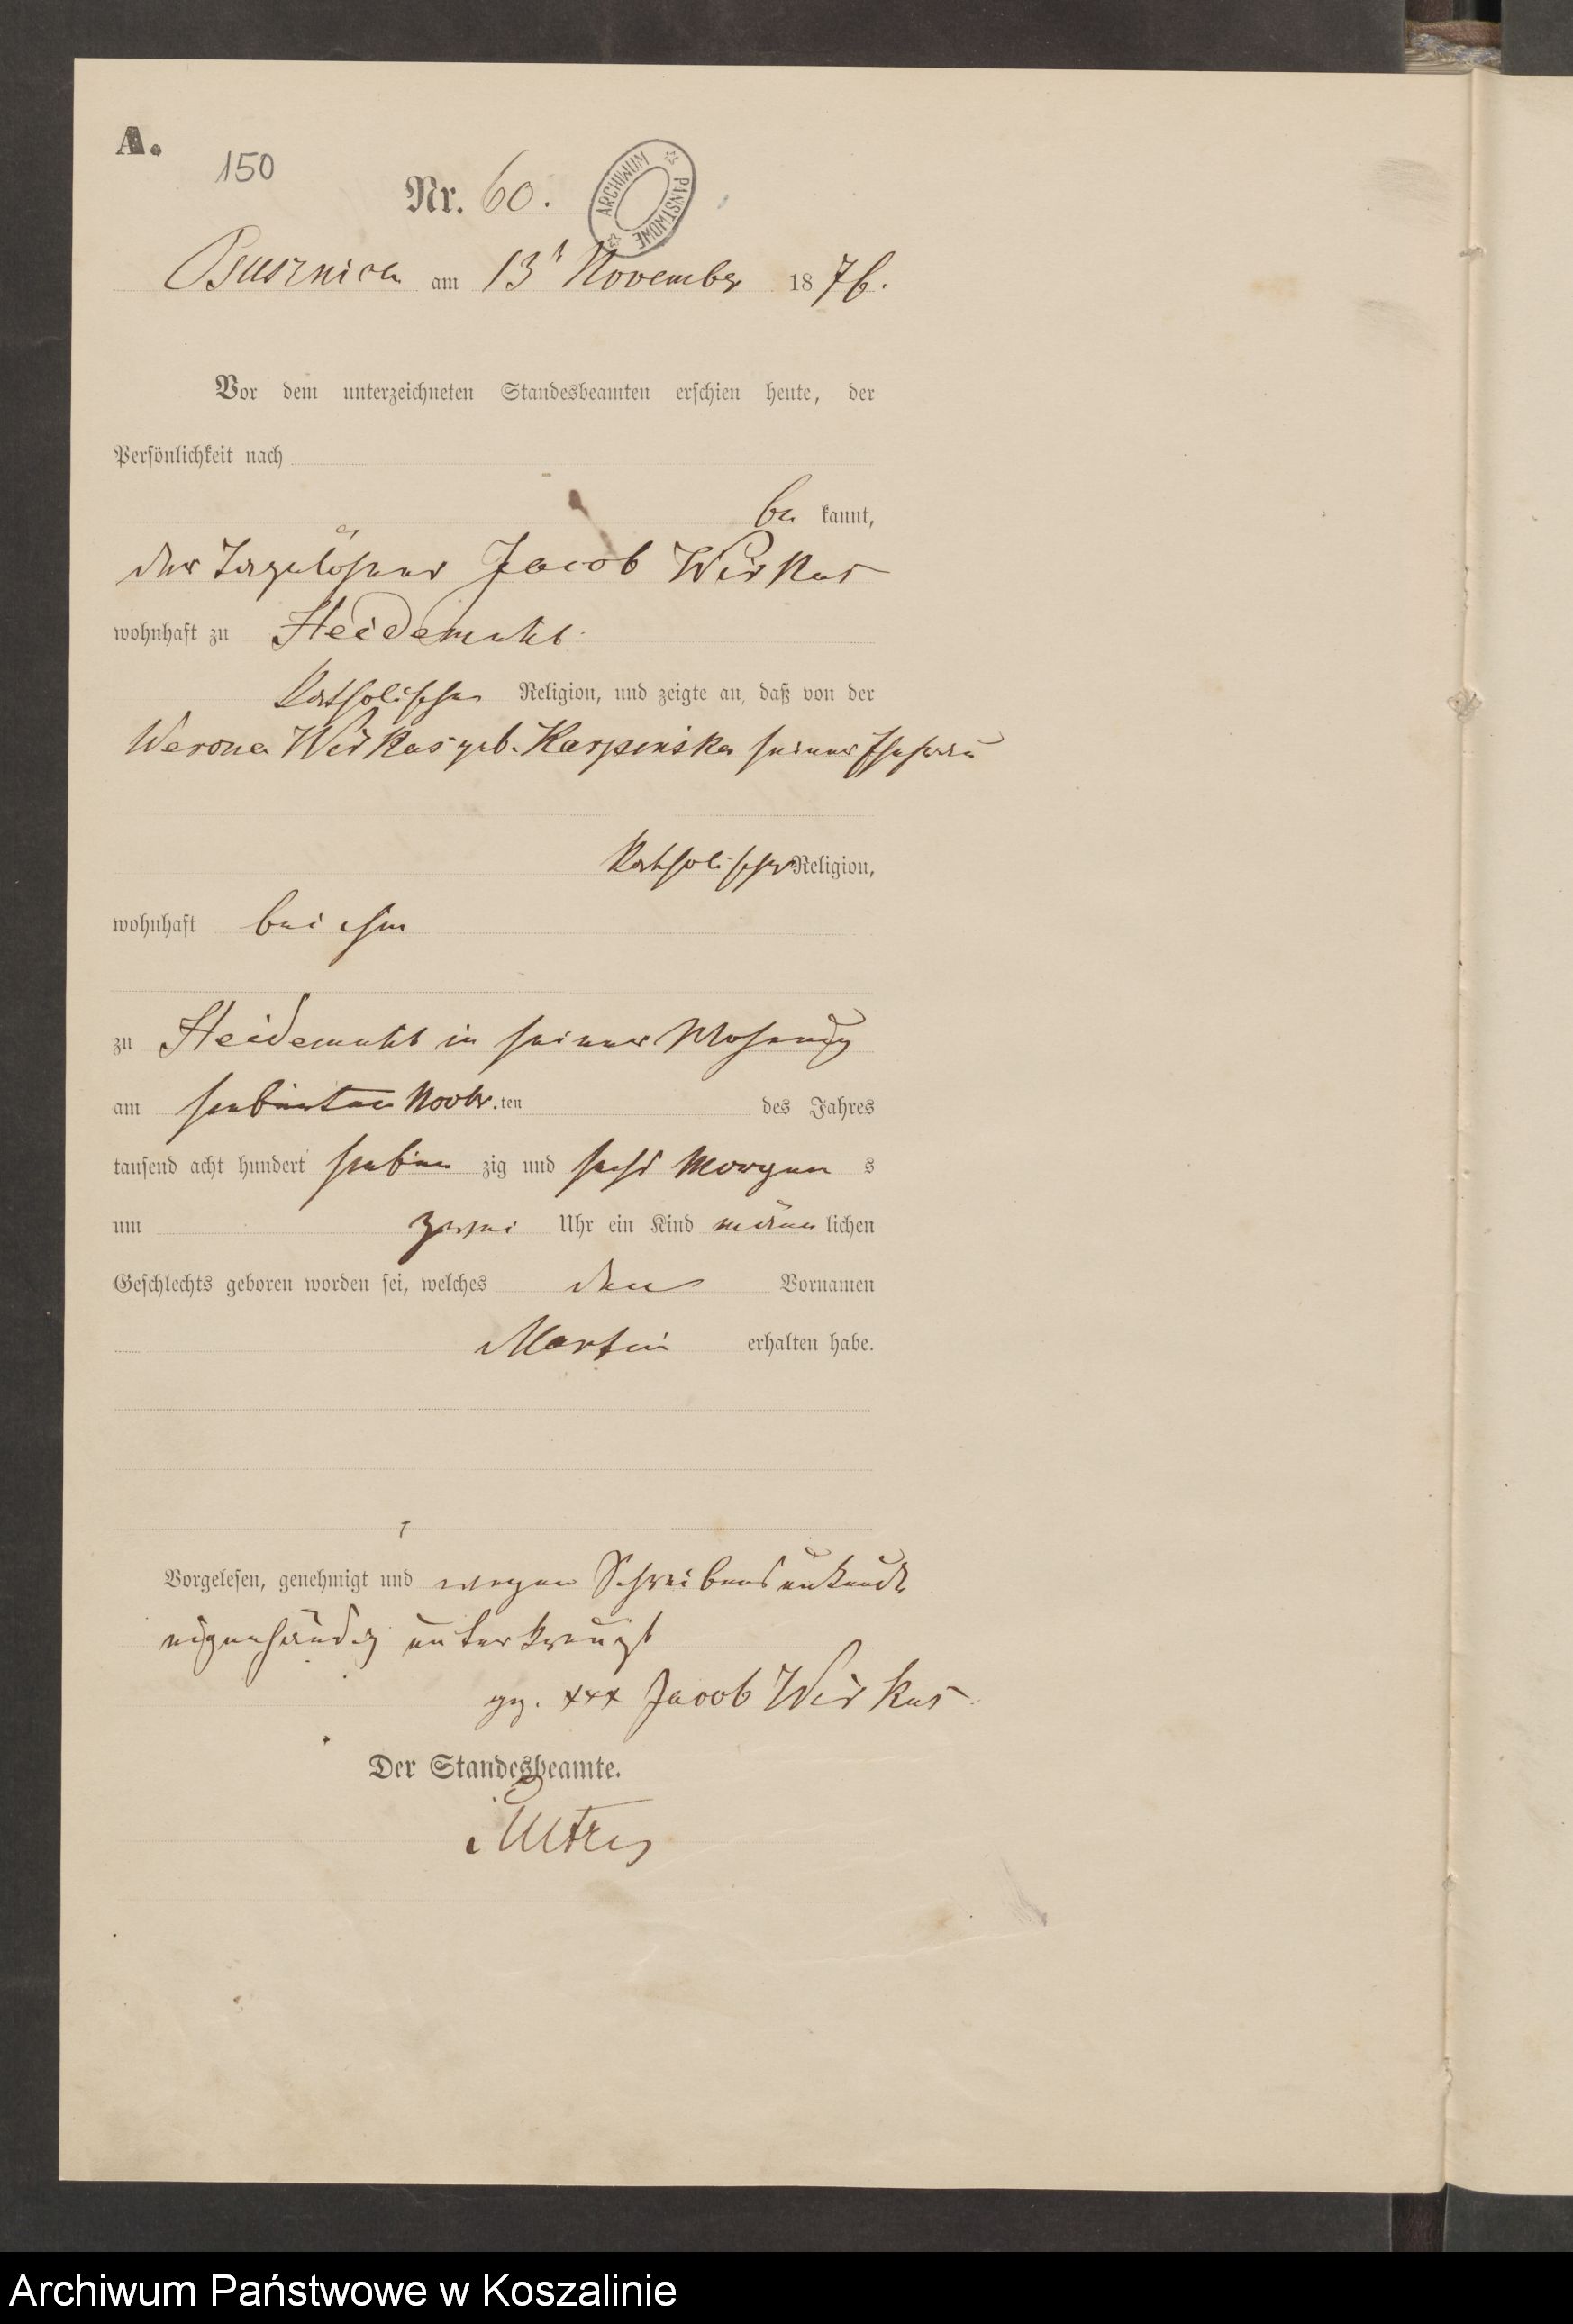 A.
150
Nr. 60.
ARCHIWUM PAŃSTWOWE
am 13t November 1876.
Vor dem unterzeichneten Standesbeamten erschien heute, der
Persönlichkeit nach
be kannt,
der Tagelöhner Jacob Wirkus
wohnhaft zu Heidemühl
katholischer Religion, und zeigte an, daß von der
Werona Wirkus geb. Karpinska seiner Ehefrau
katholischer Religion,
wohnhaft bei ihm
zu Heidemühl in seiner Wohnung
am siebenten Novbr. ten des Jahres
tausend acht hundert sieben zig und sechs Morgen s
um zwei Uhr ein Kind männ lichen
Geschlechts geboren worden sei, welches den Vornamen
Martin erhalten habe.
Vorgelesen, genehmigt und wegen Schreibensunkunde
eigenhändig unterkreuzt
gez. xxx Jacob Wirkus
Der Standesbeamte.
Archiwum Państwowe w Koszalinie